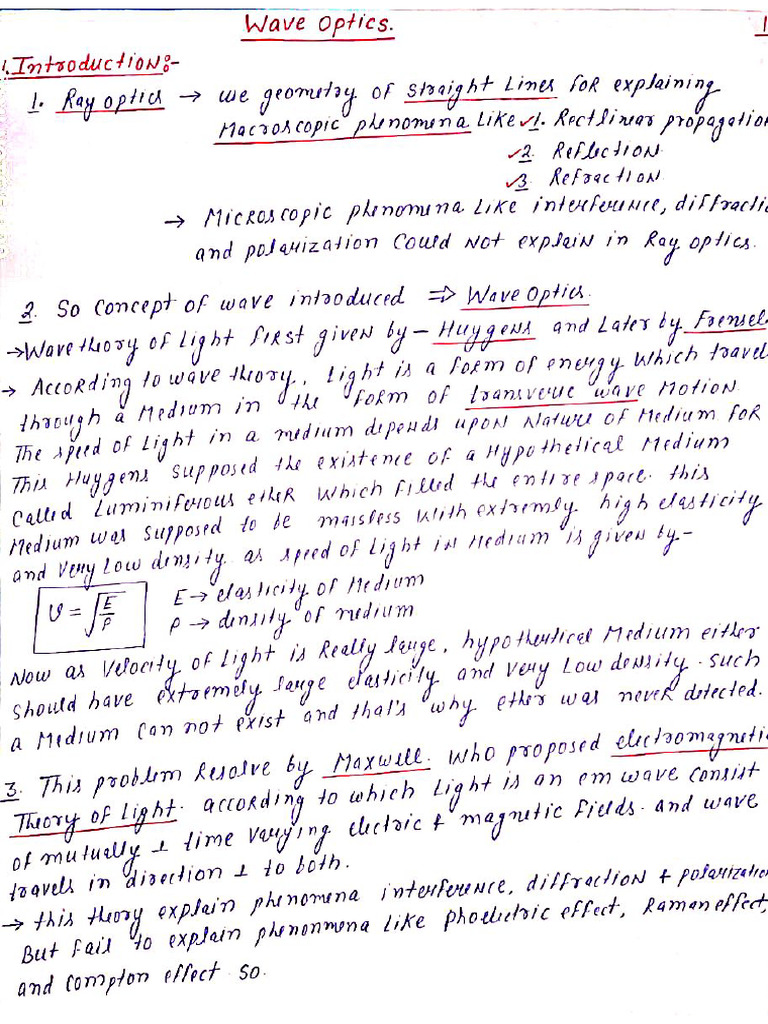 Wave Optics.
1
1. Introduction:-
1. Ray optics → use geometry of straight Lines for explaining
Macroscopic phenomena Like ✓1. Rectlinear propagation
✓2. Reflection
✓3. Refraction
→ Microscopic phenomena Like interference, diffractio
and polarization could not explain in Ray optics.
2. So concept of wave introduced ⇒ Wave Optics.
→ Wave theory of Light first given by - Huygens and Later by Frensel.
→ According to wave theory, Light is a form of energy which travel
through a Medium in the form of transverse wave Motion
The speed of Light in a medium depends upon Nature of Medium for
This Huygens supposed the existence of a Hypothetical Medium
called Luminiferous ether which filled the entire space. this
Medium was supposed to be massless with extremly high elasticity
and very Low density as speed of Light in Medium is given by-
v = √E/ρ E → elasticity of Medium
ρ → density of medium
Now as velocity of Light is Really large, hypothetical Medium either
should have extremely large elasticity and very Low density. such
a Medium can not exist and that's why ether was never detected.
3. This problem Resolve by Maxwell. who proposed electromagnetic
Theory of Light. according to which Light is an em wave consist
of mutually ⊥ time varying electric & magnetic fields. and wave
travels in direction ⊥ to both.
→ this theory explain phenomena interference, diffraction & polarization
But fail to explain phenonmena Like phoelectric effect, Raman effect,
and compton effect so.